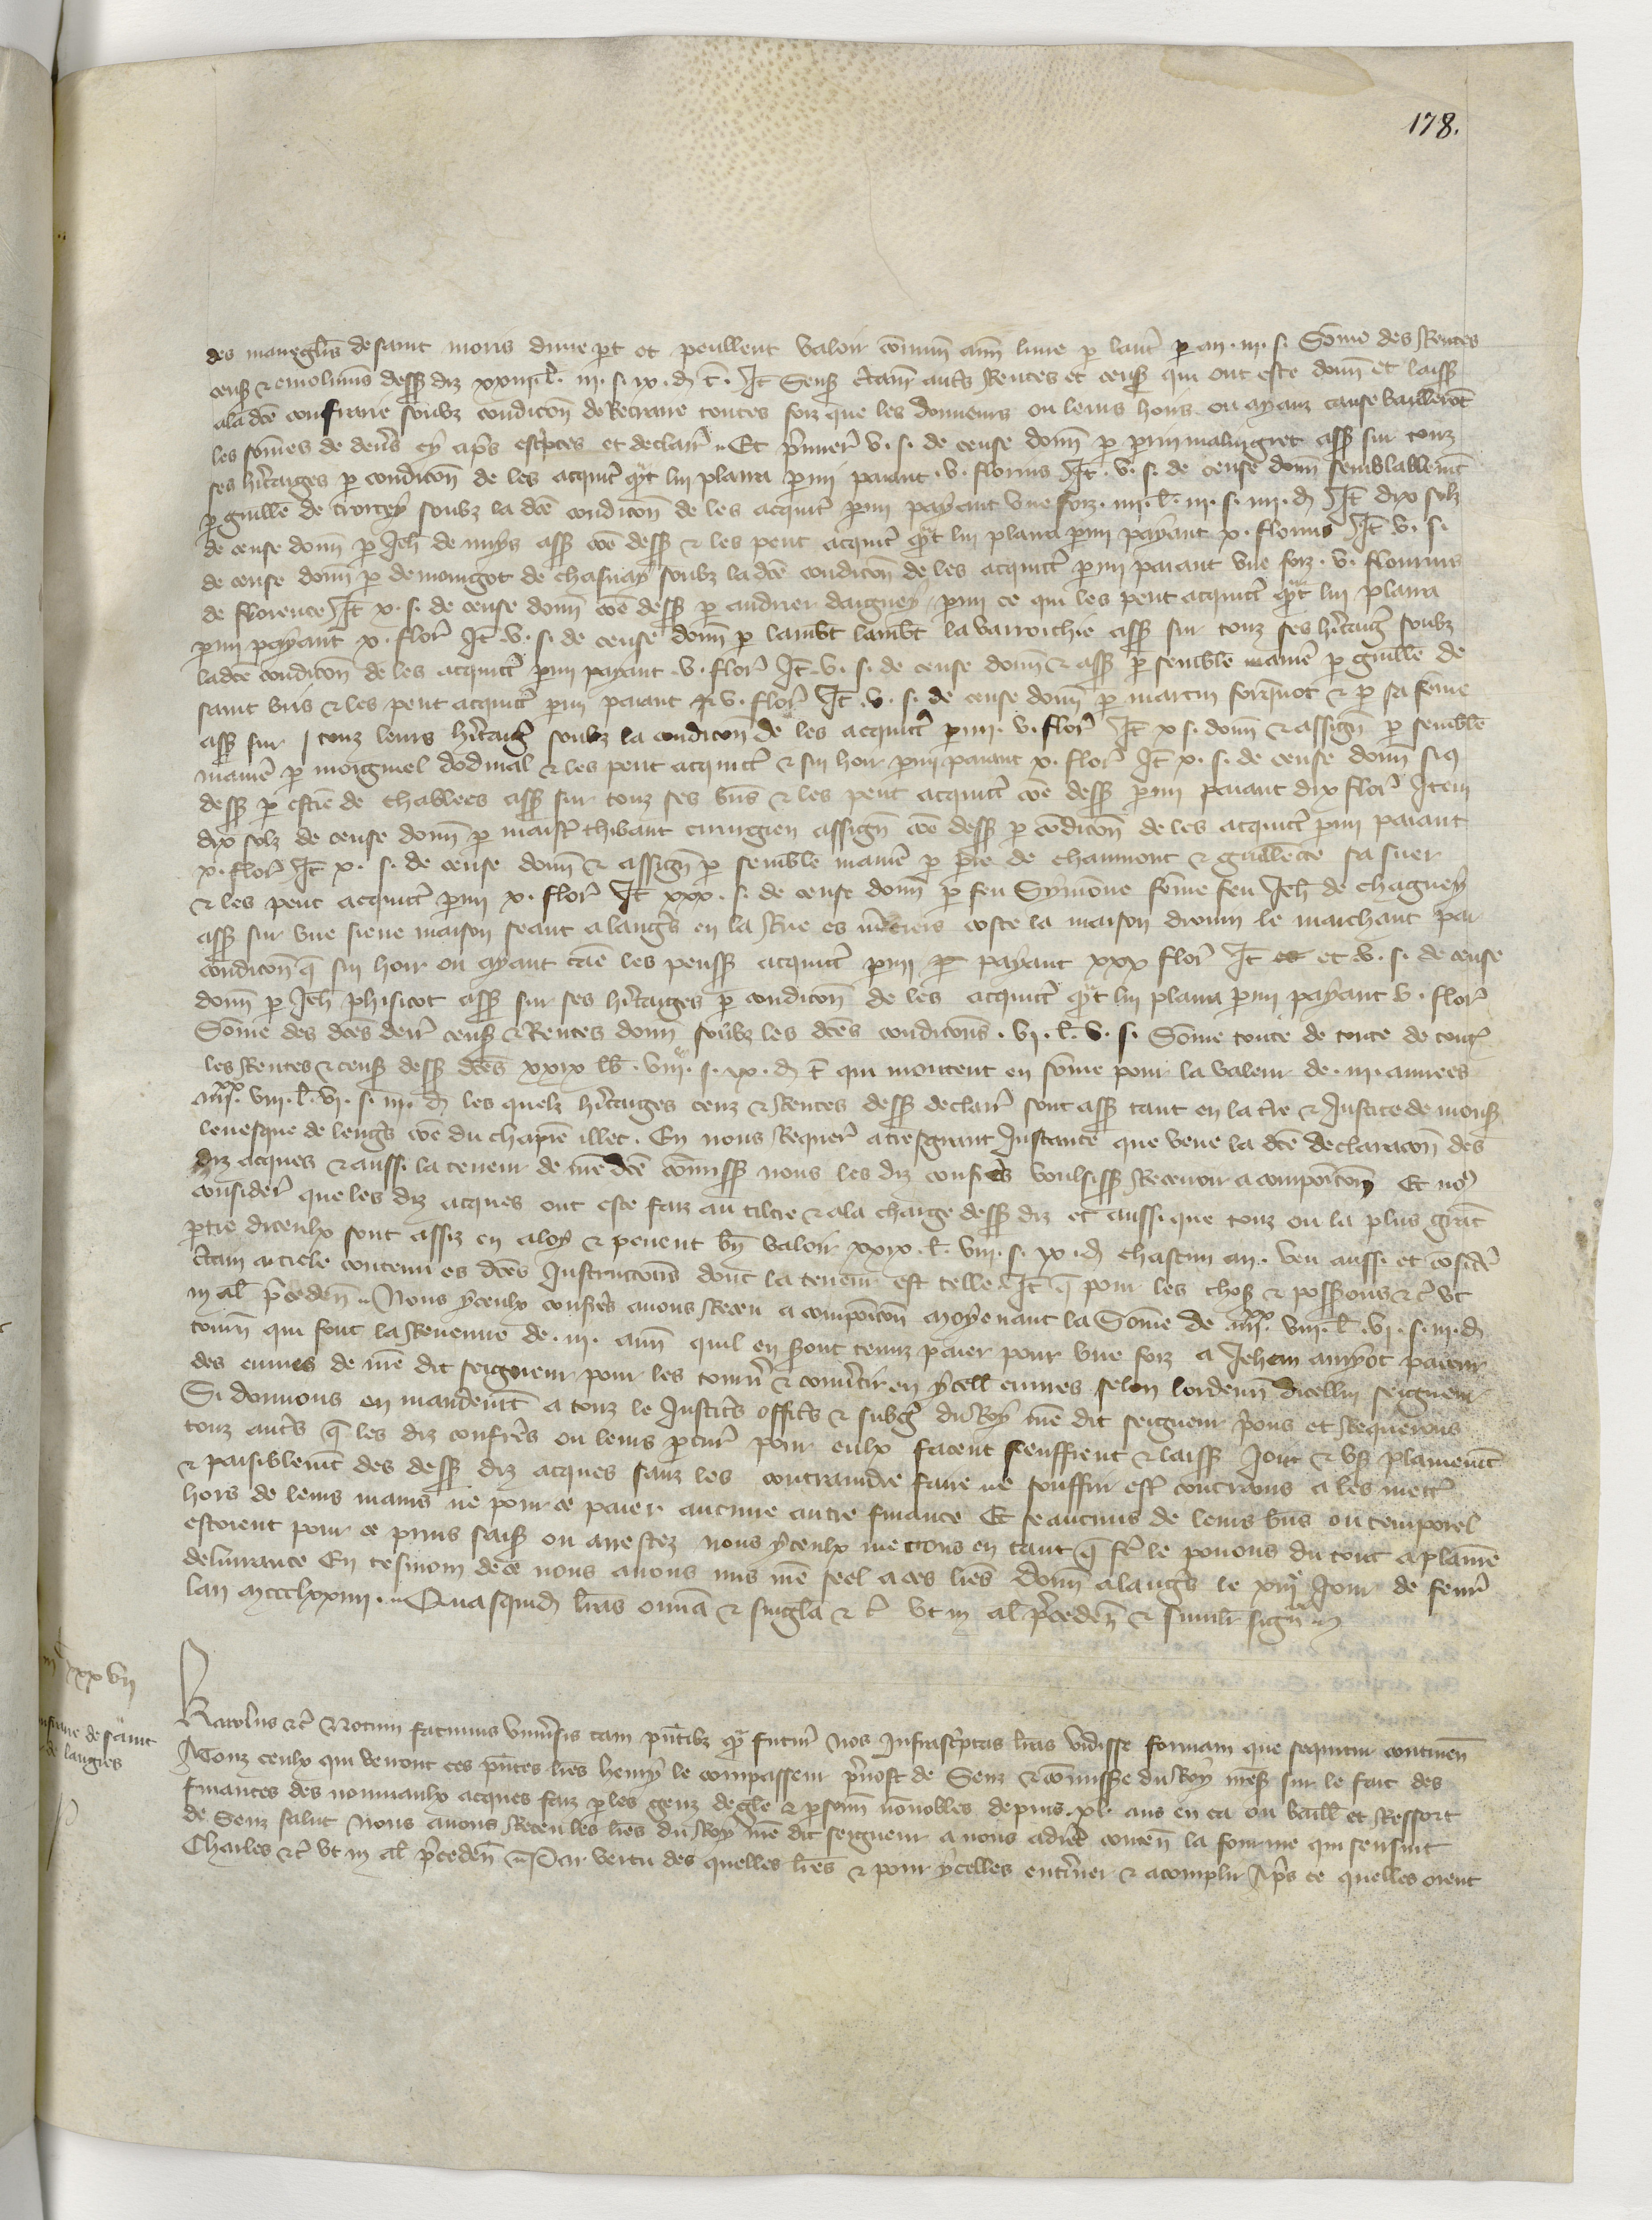 178.
des maneglis de saint moris dune pt et peullent valoir comun ann lune p laut p an . iij . s. Some des Rentes
cens & emolumens dess diz xxiij l. iij . s. ix . d t. It Sens ctain auts Rentes et cens qui ont este donn et laiss
ala dce confrarie soubz condicon de Retraire toutes foiz que les donneurs ou leurs hoirs ou ayanz cause bailleront
les somes de deners cy aps escptes et declair Et pmier v . s. de cense donn p perin malingret ass sur touz
ses heritaiges p condicon de les acquit qt lui plaira pmi paiant . v . florins It . v . s. de cense donn semblablemt
p guille de troicey soubz la dce condicon de les acquit pmi payant une foiz . iiij . l. iij . s. iiij . d It dix solz
de cense donn p Jeh de nuys ass coe dess & les peut acquit qt lui plaira pmi payant x . florins It v . s.
de cense donn p demoingot de chasnay soubz la dce condicon de les acquict pmi paiant une foiz . v . flourins
de florence It x . s. de cense donn coe dess p andrier daigney pmi ce qui les peut acquict qt lui plaira
pmi payant x . flor It v . s. de cense donn p lambt lambt la varroichie ass sur touz ses heritaig soubz
ladce condicon de les acquict pmi payant . v . flor It v . s. de cense donn & ass p semble manie p guille de
saint bris & les peut acquict pmi paiant v . flor It . v . s. de cense donn p martin forquenot & p sa feme
ass sur touz leurs heritaig soubz la condicon de les acquict pmi . v . flor It x s. donn & assign p semble
manie p moigniel dodinal & les peut acquict & sui hoir pmi paiant x . flor It x . s. de cense donn sig
dess p estie de chablees ass sur touz ses bns & les peut acquict coe dess pmi paiant dix flor Item
dix solz de cense donn p maist thibaut cirurgien assign coe dess p condicon de les acquict pmi paiant
x . flor It x . s. de cense donn & assign p semble manie p pre de chaumont & guillecte sa suer
& les peut acquict pmi x . flor It xxx . s. de cense donn p feu Symone feme feu Jeh de chagney
ass sur une siene maison seant a langrs en la Rue es merciers coste la maison drouin le marchant par
condicon q sui hoir ou ayant cae les peuss acquict pmi payant xxx flor It et v . s. de cense
donn p Jeh phisicot ass sur ses heritaiges p condicon de les acquict qt lui plaira pmi payant v . flor
Some des dces derr cens & Rentes donn soubz les dces condicons . vj . l. v . s. Some toute de toute de tout
les Rentes & cens dess dces xxix lb . viij . s. ix . d t qui montent en some pour la valeur de . iij . annees
iiijxx . viij . l. vj . s. iij . d les quelz heritaiges cenz & Rentes dess declair sont ass tant en la tre & Justice de mons
levesque de lengrs coe du chapitre illec . En nous Requer a tresgrant Instance que veue la dce declaracon des
diz acques & aussi la teneur de nre dce comiss nous les diz confres voulsiss Recevoir a composicon Et nos
consider que les diz acques ont este faiz au tiltre & ala charge dess diz et aussi que touz ou la plus grat
ptie diceulx sont assiz en aloy & pevent bn valoir xxix . l. viij . s. ix . d chascun an . veu aussi et consider
ctain article contenu es dces Instructions dont la teneur est telle It q pour les chos & possessions &c ut
in al pcedn Nous yceulx confres avons Receu a composicon moyenant la Some de iiijxx . viij . l. vj . s. iij . d
tourn qui font la Revenue de . iij . ann quil en sont tenuz paier pour une foiz a Jehan amyot paieur
des euvres de nre dit seigneur pour les tourn & convertir en ycell euvres selon lordenn dicellui seigneur
Si donnons en mandemt a touz le Justiciers offics & subgez du Roy nre dit seigneur prions et Requerons
touz auts q les diz confres ou leurs pcur pour eulx facent seuffrent & laiss Joir & us plainemt
& paisiblemt des dess diz acques sanz les contraindre faire ne souffrir est contrains a les mettre
hors de leurs mains ne pour ce paier aucune autre finance Et se aucuns de leurs bns ou temporel
estoient pour ce prins saisis ou arrestez nous yceulx mectons en tant q fe le povons du tout a plaine
delivrance En tesmoin de ce nous avons mis nre seel a ces lres Donn a langrs le xiije Jour de fevr
lan mccclxxiiij . Quasquid lras omia & singla &c ut in al pcedn & simili sign
xxvij
confrarie de saint
de langres
Karolus &c Notum facimus universis tam pntibz q futuris Nos Infrascptas lras vidisse formam que sequitur continen
A Touz ceulx qui verront ces pntes lres henry le compasseur prevost de Sens & comissaire du Roy nres sur le fait des
finances des nouveaulx acques faiz p les genz degle & psonn nonnobles depuis xl ans en ca ou baill et Ressort
de Sens salut Nous avons Receu les lres du Roy nre dit seigneur a nous adrec conten la fourme qui sensuit
Charles &c ut in al pcedn Par vertu des quelles lres & pour ycelles enteriner & acomplir Aps ce quelles orent